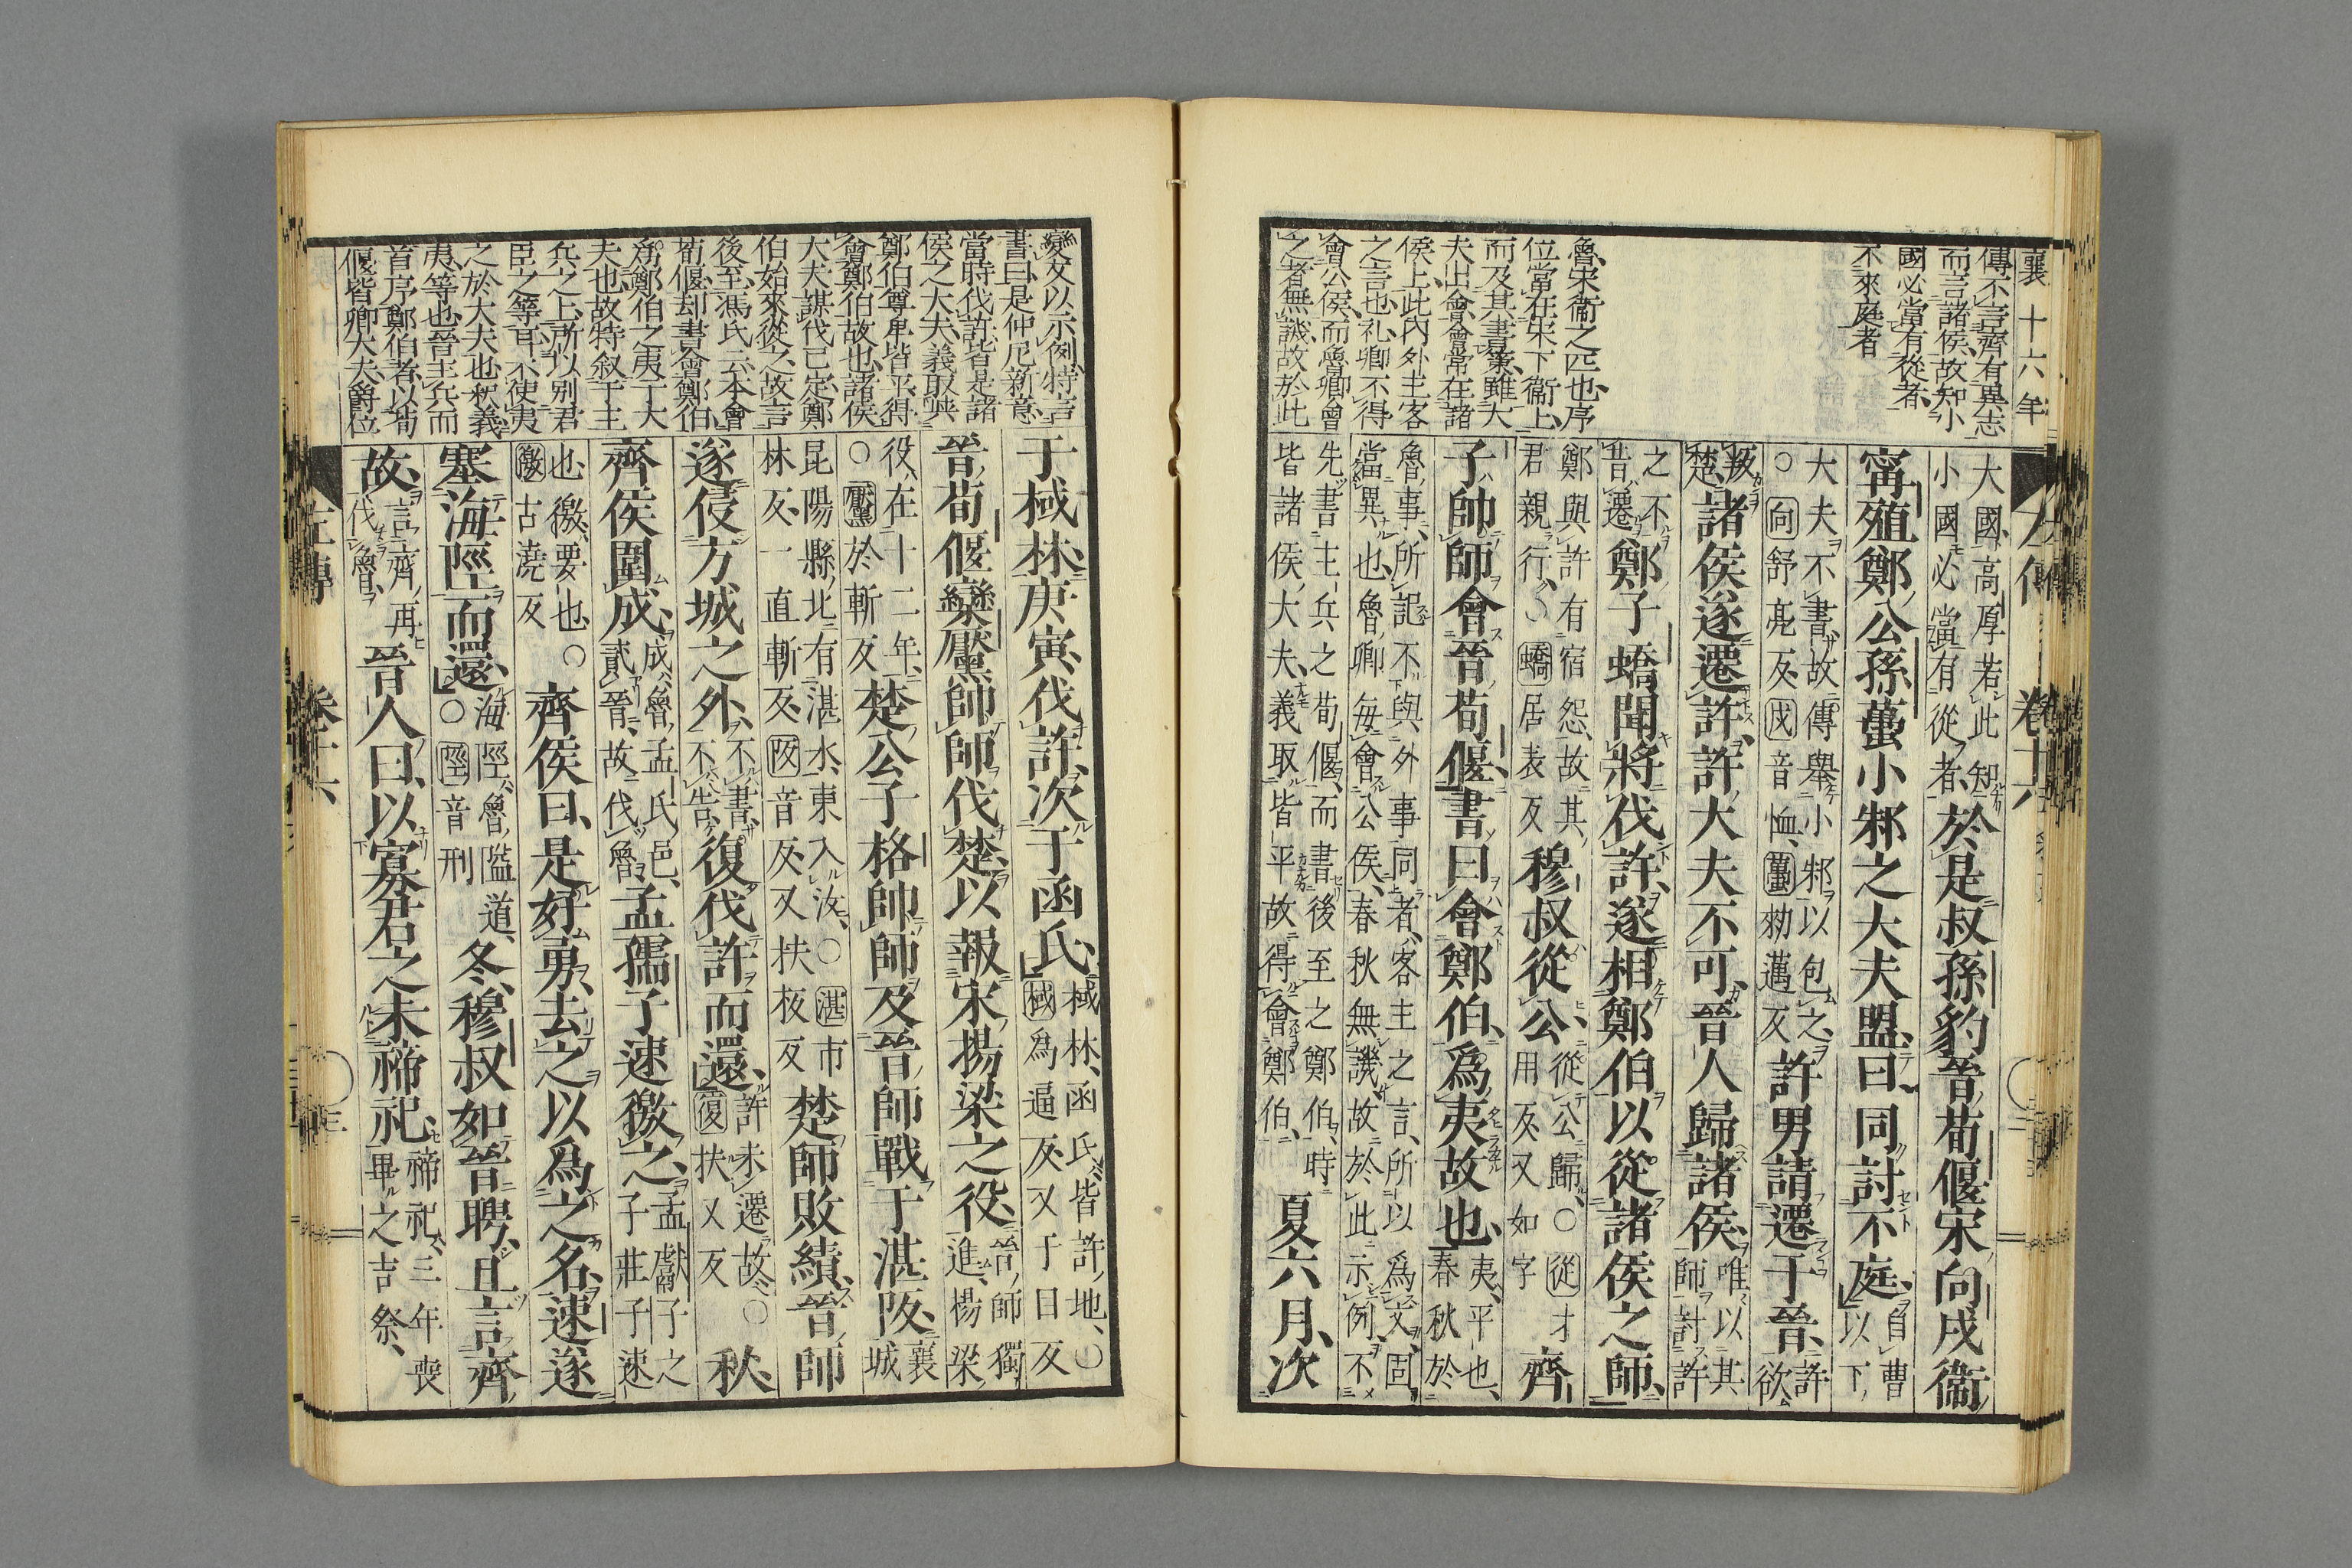 襄十六年
傳不言齊有異志
而言諸侯故知小
國必當有從者
不來庭者
魯宋衞之匹也序
位當在宋下衞上
而及其書策雖大
夫出會會常在諸
侯上此内外主客
之言也礼卿不得
會公侯而魯卿會
之者無譏故於此
大國高厚若此知小國必當有從者於是叔孫豹晉荀偃宋向戌衞
甯殖鄭公孫蠆小邾之大夫盟曰同討不庭自曹以下
大夫不書故傳舉小邾以包之○向舒亮反戌音恤蠆勑邁反許男請遷于晉許欲
叛楚諸侯遂遷許許大夫不可晉人歸諸侯唯以其師討許
之不肯遷鄭子蟜聞將伐許遂相鄭伯以從諸侯之師
鄭與許有宿怨故其君親行○蟜居表反穆叔從公從公歸○從才用反又如字齊
子帥師會晉荀偃書曰會鄭伯爲夷故也夷平也春秋於
魯事所記不與外事同者客主之言所以爲文固當異也魯卿每會公侯春秋無譏故於此示例不
先書主兵之荀偃而書後至之鄭伯時皆諸侯大夫義取皆平故得會鄭伯夏六月次
變文以示例特言
書曰是仲尼新意
當時伐許皆是諸
侯之大夫義取與
鄭伯尊卑皆平得
會鄭伯故也諸侯
大夫謀伐已定鄭
伯始來從之故言
後至馮氏云本會
荀偃却書會鄭伯
爲鄭伯之夷于大
夫也故特叙于主
兵之上所以别君
臣之等耳不使夷
之於大夫也釈義
夷等也晉主兵而
首序鄭伯者以荀
偃皆卿大夫爵位
于棫林庚寅伐許次于函氏棫林函氏皆許地○棫爲逼反又于目反
晉荀偃欒黶帥師伐楚以報宋揚梁之役晉師獨進楊梁
役在十二年○黶於斬反楚公子格帥師及晉師戰于湛阪襄城
昆陽縣北有湛水東入汝○湛市林反一直斬反阪音反又扶板反楚師敗績晉師
遂侵方城之外不書不告復伐許而還許未遷故○復扶又反秋
齊侯圍成成魯孟氏邑貳晉故伐魯孟孺子速徼之孟獻子之子莊子速
也徼要也○徼古澆反齊侯曰是好勇去之以爲之名速遂
塞海陘而還海陘魯隘道○陘音刑冬穆叔如晉聘且言齊
故言齊再伐魯晉人曰以寡君之未禘祀禘祀三年喪畢之吉祭